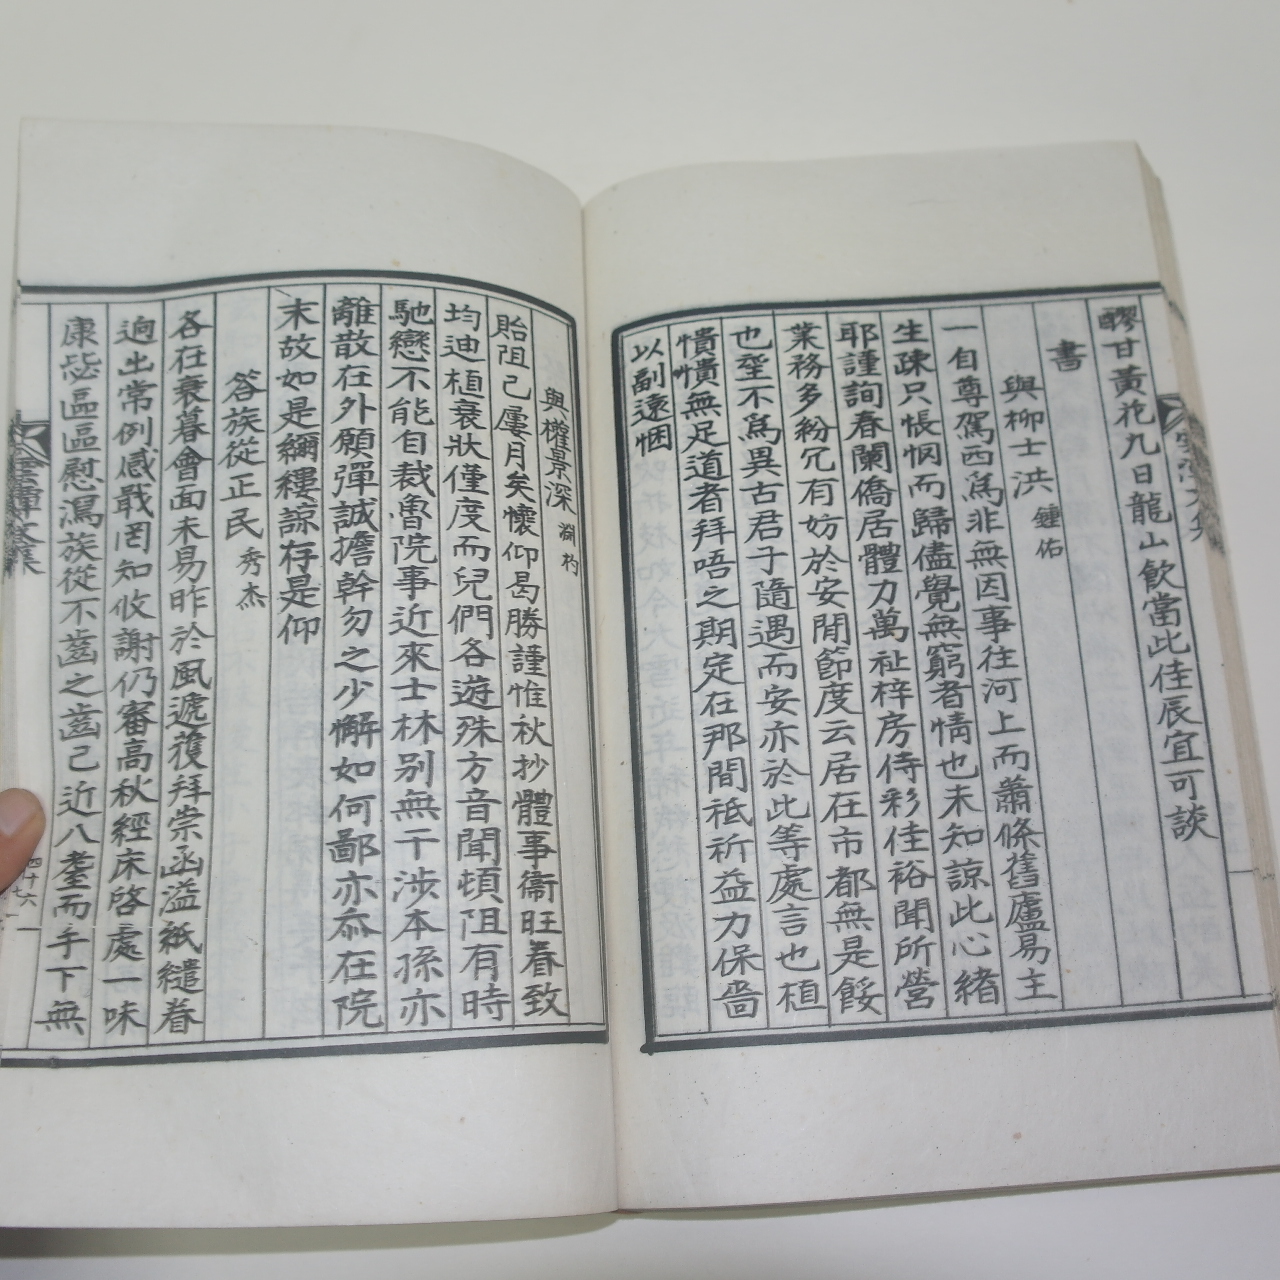 醪甘黃花九日龍山飮當此佳辰宜可談
書
與柳士洪 鍾佑
一自尊駕西爲非無因事往河上而蕭條舊廬易主
生疎只悵惘而歸儘覺無窮者情也未知諒此心緖
耶謹詢春闌僑居體力萬祉梓房侍彩佳裕聞所營
業務多紛冗有妨於安閒節度云居在市都無是餒
也聖不爲異古君子隨遇而安亦於此等處言也植
憒憒無足道者拜唔之期定在那間祗祈益力保嗇
以副遠悃
與權景深
貽阻已屢月矣懷仰曷勝謹惟秋抄體事衞旺眷致
均迪植衰狀僅度而兒們各遊殊方音聞頓阻有時
馳戀不能自裁魯院事近來士林別無干涉本孫亦
離散在外願彈誠擔幹勿之少懈如何鄙亦忝在院
末故如是縷諒存是仰
答族從正民 秀杰
各在衰暮會面未易昨於風遞獲拜崇函溢紙繾眷
逈出常例感戢罔知攸謝仍審高秋經床啓處一味
康毖區區慰瀉族從不齒之齒已近八耋而手下無
四十六